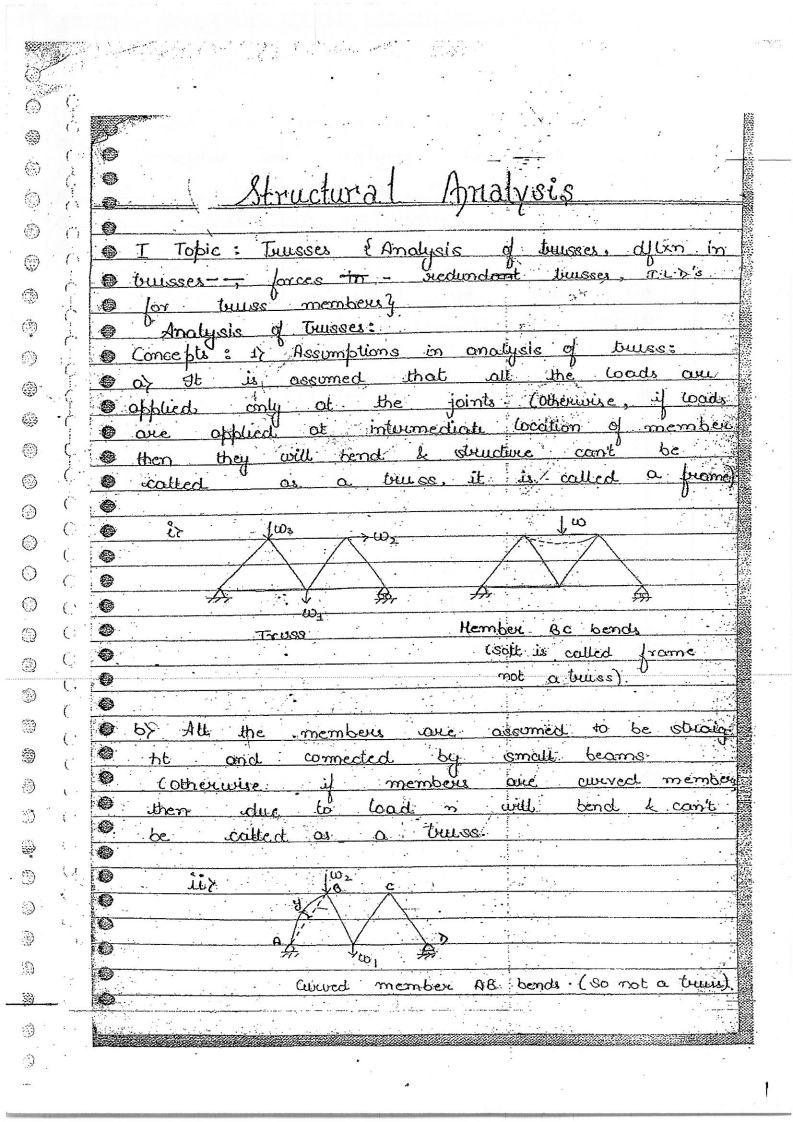 Structural Analysis
I Topic : Trusses { Analysis of trusses, dflxn in
trusses--, forces in - redundant trusses, I.L.D's
for truss members}
Analysis of Trusses:
Concepts : 1> Assumptions in analysis of truss:
a> It is assumed that all the loads are
applied only at the joints. (otherwise, if loads
are applied at intermediate location of member
then they will bend & structure can't be
called as a truss, it is called a frame)
i> ω3 ω2 ω
ω1
Truss Member BC bends
(so it is called frame
not a truss).
b> All the members are assumed to be straig
ht and connected by small beams.
(otherwise if members are curved member
then due to load n will bend & can't
be called as a truss.
ii> ω2
B C
y
A D
ω1
Curved member AB bends. (So not a truss).
1